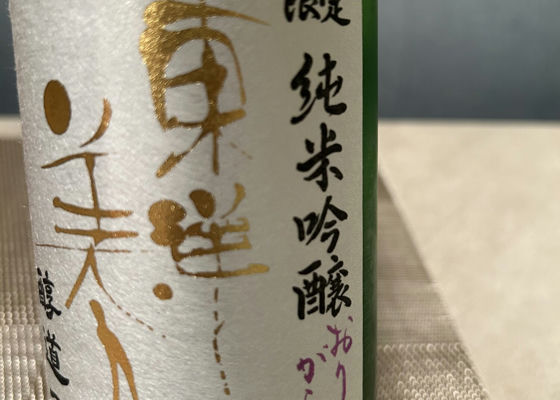 限定 純米吟醸
おり
が
東洋
美人
醇道